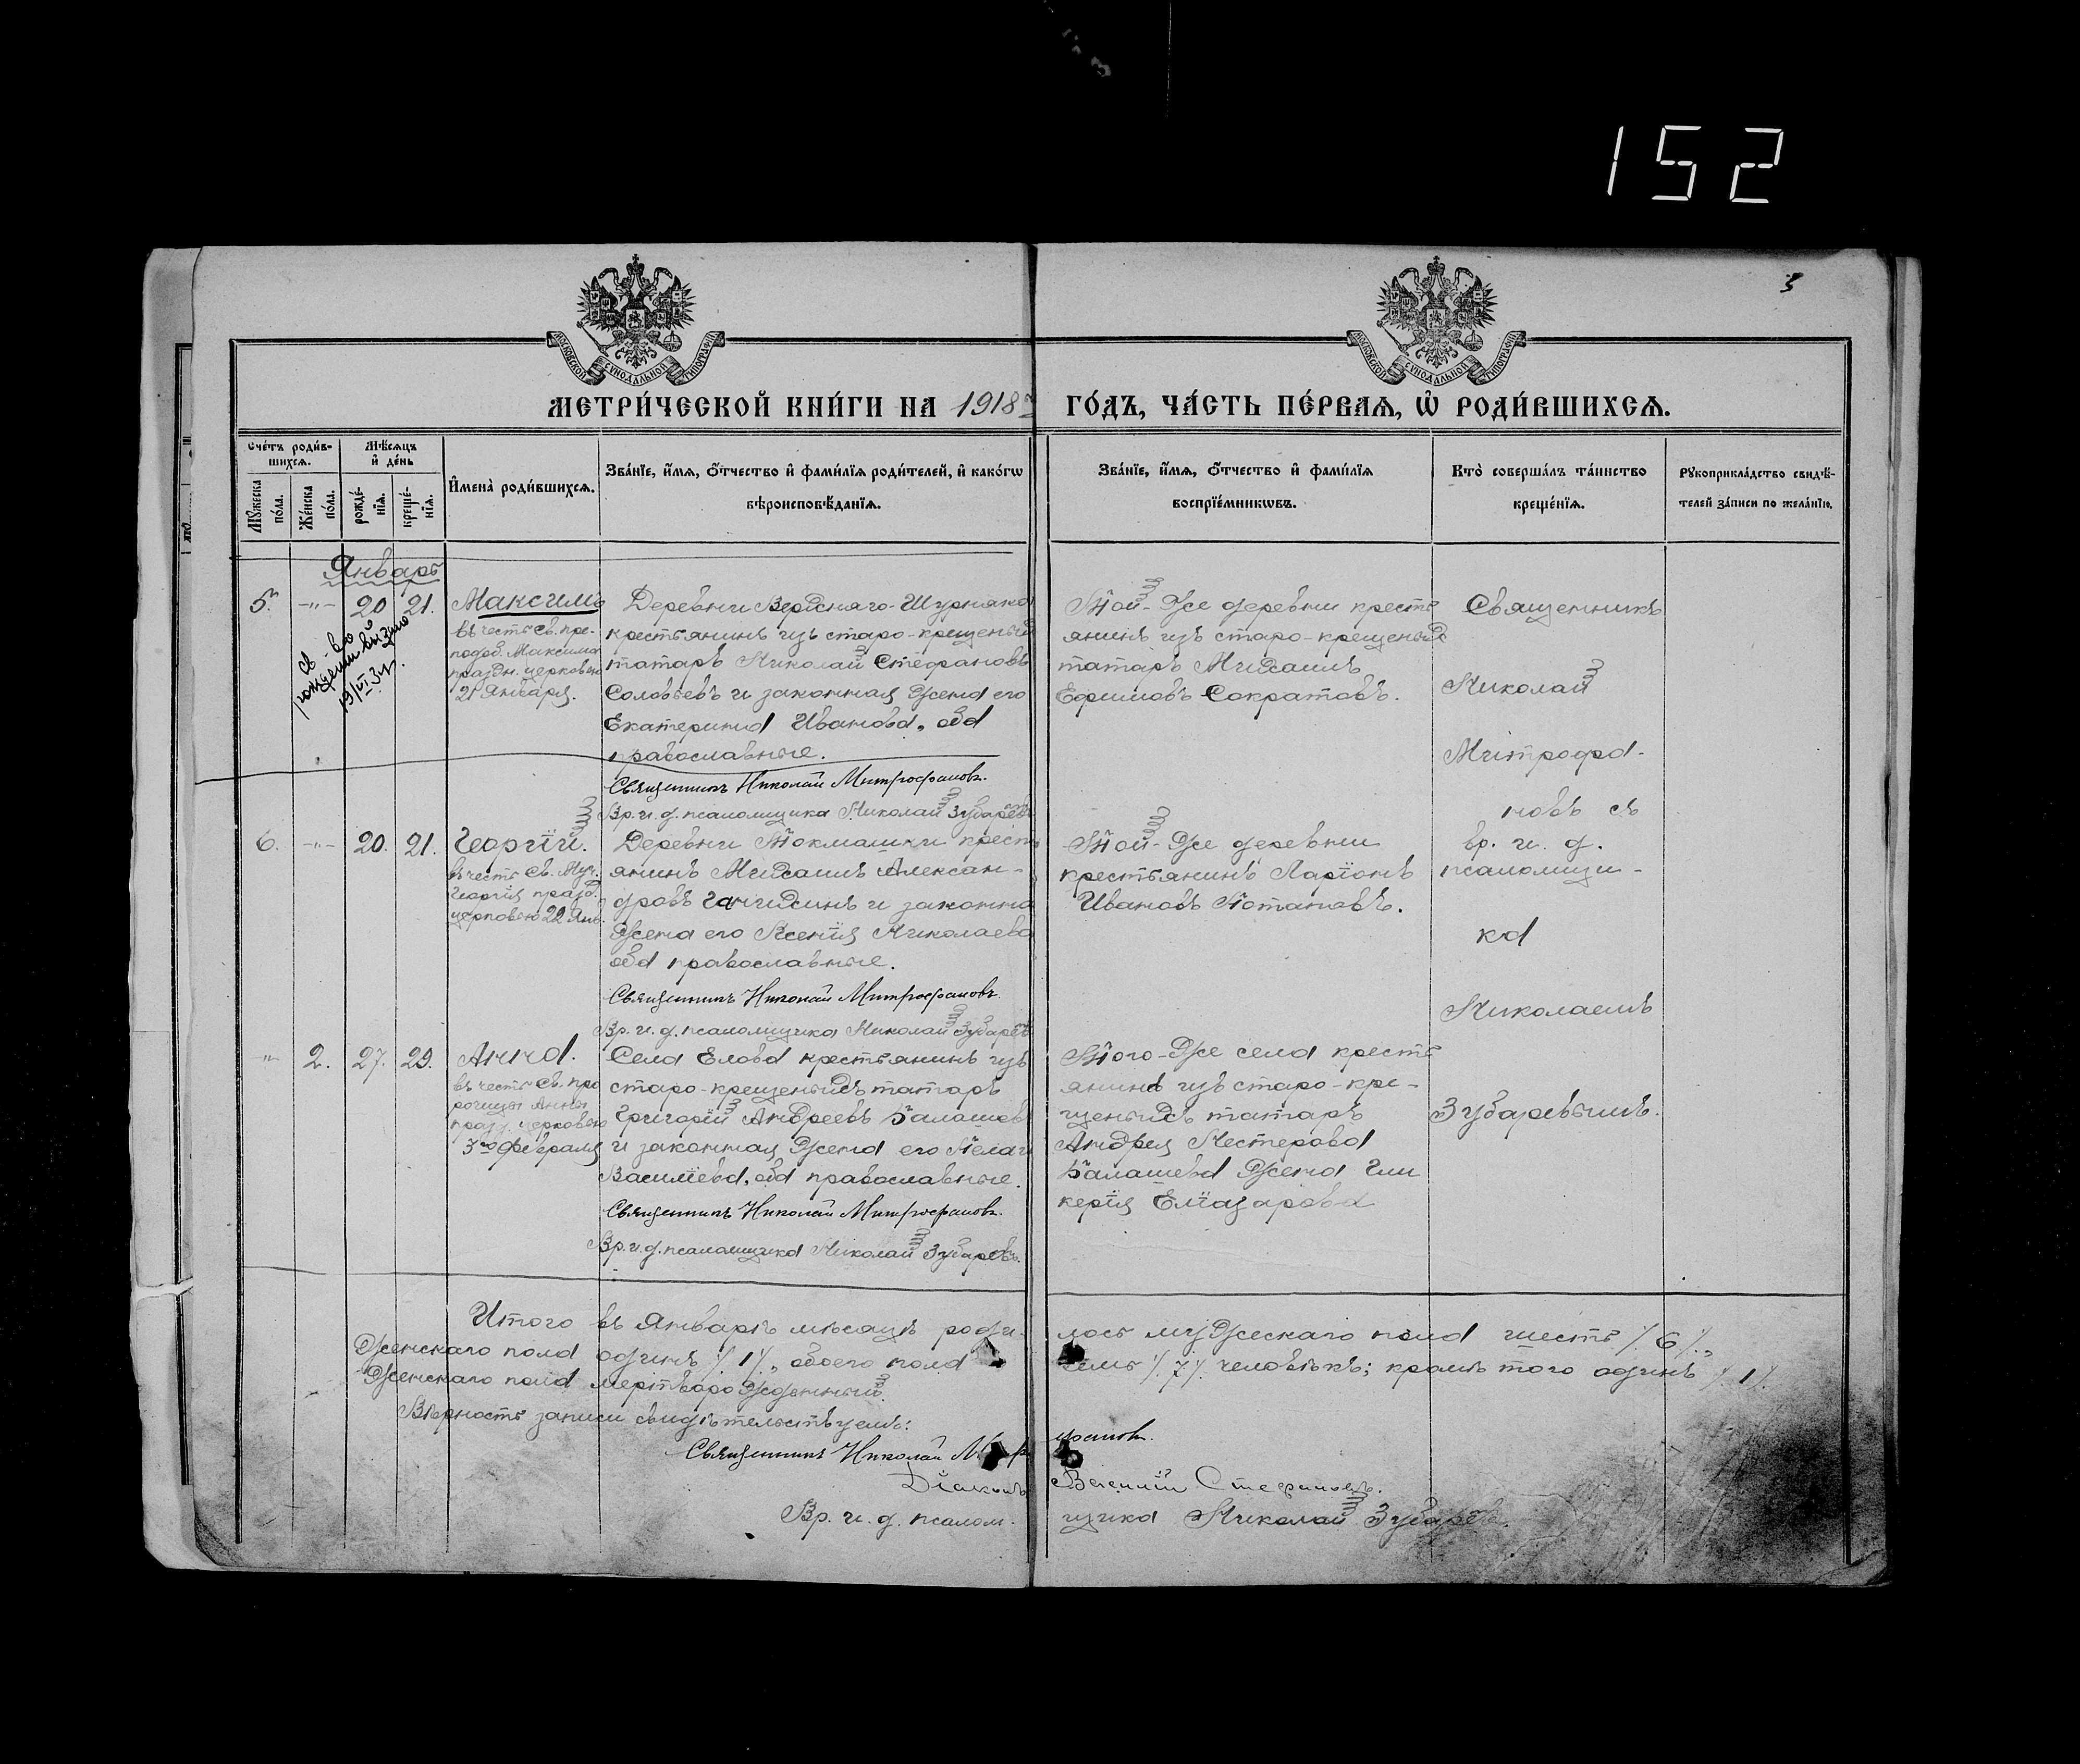 152
3
МОСКОВСКОЙ СѴНОДАЛЬНОЙ ТИПОГРАФІИ
МОСКОВСКОЙ СѴНОДАЛЬНОЙ ТИПОГРАФІИ
МЕТРИ́ЧЕСКОЙ КНИ́ГИ НА 1918 г. ГО́ДЪ, ЧА́СТЬ ПЕ́РВАѦ, Ѡ҆ РОДИ́ВШИХСѦ.
Сче́тъ роди́в-
шихсѧ.
Мꙋ́жеска по́ла.
Же́нска по́ла.
Мѣ́сѧцъ и҆ де́нь
рожде́-нїѧ.
креще́-нїѧ.
И҆мена̀ роди́вшихсѧ.
Зва́нїе, и҆́мѧ, ѻ҆́тчество и҆ фами́лїѧ роди́телей, и҆ како́гѡ
вѣроисповѣ́данїѧ.
Зва́нїе, и҆́мѧ, ѻ҆́тчество и҆ фами́лїѧ
воспрїе́мникѡвъ.
Кто̀ соверша́лъ та́инство
креще́нїѧ.
Рꙋкоприкла́дство свидѣ́-
телей за́писи по жела́нїю.
Январь
5. -"- 20 21. Максимъ
въ честь св. пре-
подоб. Максима
праздн. церковью
21 Января.
св-во
рожденіи выдано
19/VI 34.
Деревни Верхняго-Шурняка
крестьянинъ изъ старо-крещеныхъ
татаръ Николай Стефановъ
Соловьевъ и законная жена его
Екатерина Иванова, оба
православные.
Священникъ Николай Митрофановъ.
Вр. и. д. псаломщика Николай Зубаревъ
Той-же деревни кресть
янинъ изъ старо-крещеныхъ
татаръ Михаилъ
Ефимовъ Сократовъ.
Священникъ
Николай
Митрофа-
новъ съ
вр. и. д.
псаломщи-
ка
Николаемъ
Зубаревымъ.
6. -"- 20. 21. Георгій.
въ честь св. Муч.
Георгія празд.
церковью 22 Янв.
Деревни Токмашки кресть
янинъ Михаилъ Алексан-
дровъ и законна
жена его Ксенія Николаева
оба православные.
Священникъ Николай Митрофановъ.
Вр. и. д. псаломщика Николай Зубаревъ
Той-же деревни
крестьянинъ Ларіонъ
Ивановъ Потаповъ.
-"- 2. 27. 29. Анна.
въ честь св. про
рочицы Анны
празд. церковью
3го февраля
Села Елова крестьянинъ изъ
старо-крещеныхъ татаръ
Григорій Андреевъ Балашевъ
и законная жена его Пелаг
Василіева, оба православные.
Священникъ Николай Митрофановъ.
Вр. и. д. псаломщика Николай Зубаревъ.
Того-же села кресть
янина изъ старо-кре-
щеныхъ татаръ
Андрея Нестерова
Балашева жена Гли
керія Еліазарова
Итого въ Январѣ мѣсяцѣ роди- лось мужескаго пола шесть /. 6 /.,
женскаго пола одинъ /. 1 /., обоего пола семь /. 7 /. человѣкъ; кромѣ того одинъ /. 1 /.
женскаго пола мертворожденный.
Вѣрность записи свидѣтельствуемъ:
Священникъ Николай Митрофановъ.
Діаконъ Стефановъ.
Вр. и. д. псалом- щика Николай Зубаревъ.